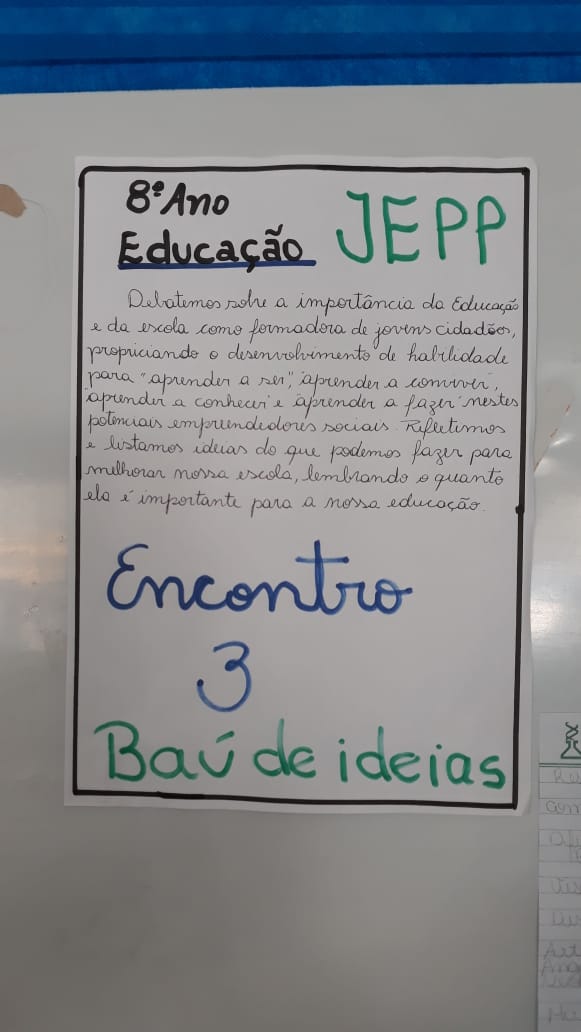 8º Ano
Educação
JEPP
Debatemos sobre a importância da Educação
e da escola como formadora de jovens cidadões,
propriciando o desenvolvimento de habilidade
para "aprender a ser", "aprender a conviver",
"aprender a conhecer" e "aprender a fazer" nestes
potenciais empreendedores sociais. Refletimos
e listamos ideias do que podemos fazer para
melhorar nossa escola, lembrando o quanto
ela é importante para a nossa educação.
Encontro
3
Baú de ideias